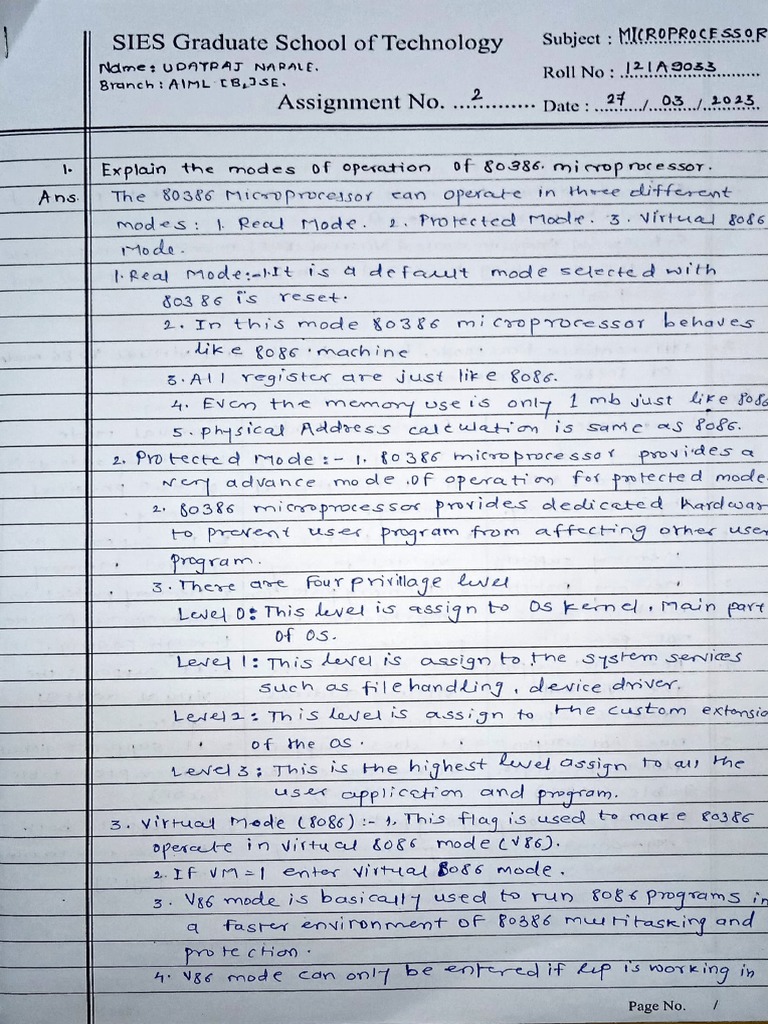 SIES Graduate School of Technology
Subject : MICROPROCESSOR
Name : UDAYRAJ NARALE.
Roll No : 121A9033
Branch : AIML [B,]SE.
Assignment No. 2
Date : 27 / 03 / 2023
1. Explain the modes of operation of 80386 microprocessor.
Ans. The 80386 Microprocessor can operate in three different
modes: 1. Real Mode. 2. Protected Mode. 3. Virtual 8086
Mode.
1. Real Mode:- 1. It is a default mode selected with
80386 is reset.
2. In this mode 80386 microprocessor behaves
like 8086 machine
3. All register are just like 8086.
4. Even the memory use is only 1 mb just like 8086
5. Physical Address calculation is same as 8086.
2. Protected Mode :- 1. 80386 microprocessor provides a
very advance mode of operation for protected mode.
2. 80386 microprocessor provides dedicated hardwar
to prevent user program from affecting other user
program.
3. There are four privillage level
Level 0: This level is assign to OS kernel. Main part
of OS.
Level 1: This level is assign to the system services
such as file handling, device driver.
Level 2: This level is assign to the custom extensio
of the OS.
Level 3: This is the highest level assign to all the
user application and program.
3. Virtual Mode (8086) :- 1. This flag is used to make 80386
operate in virtual 8086 mode (V86).
2. If VM = 1 enter virtual 8086 mode.
3. V86 mode is basically used to run 8086 programs in
a faster environment of 80386 multitasking and
protection.
4. V86 mode can only be entered if is working in
Page No. 1